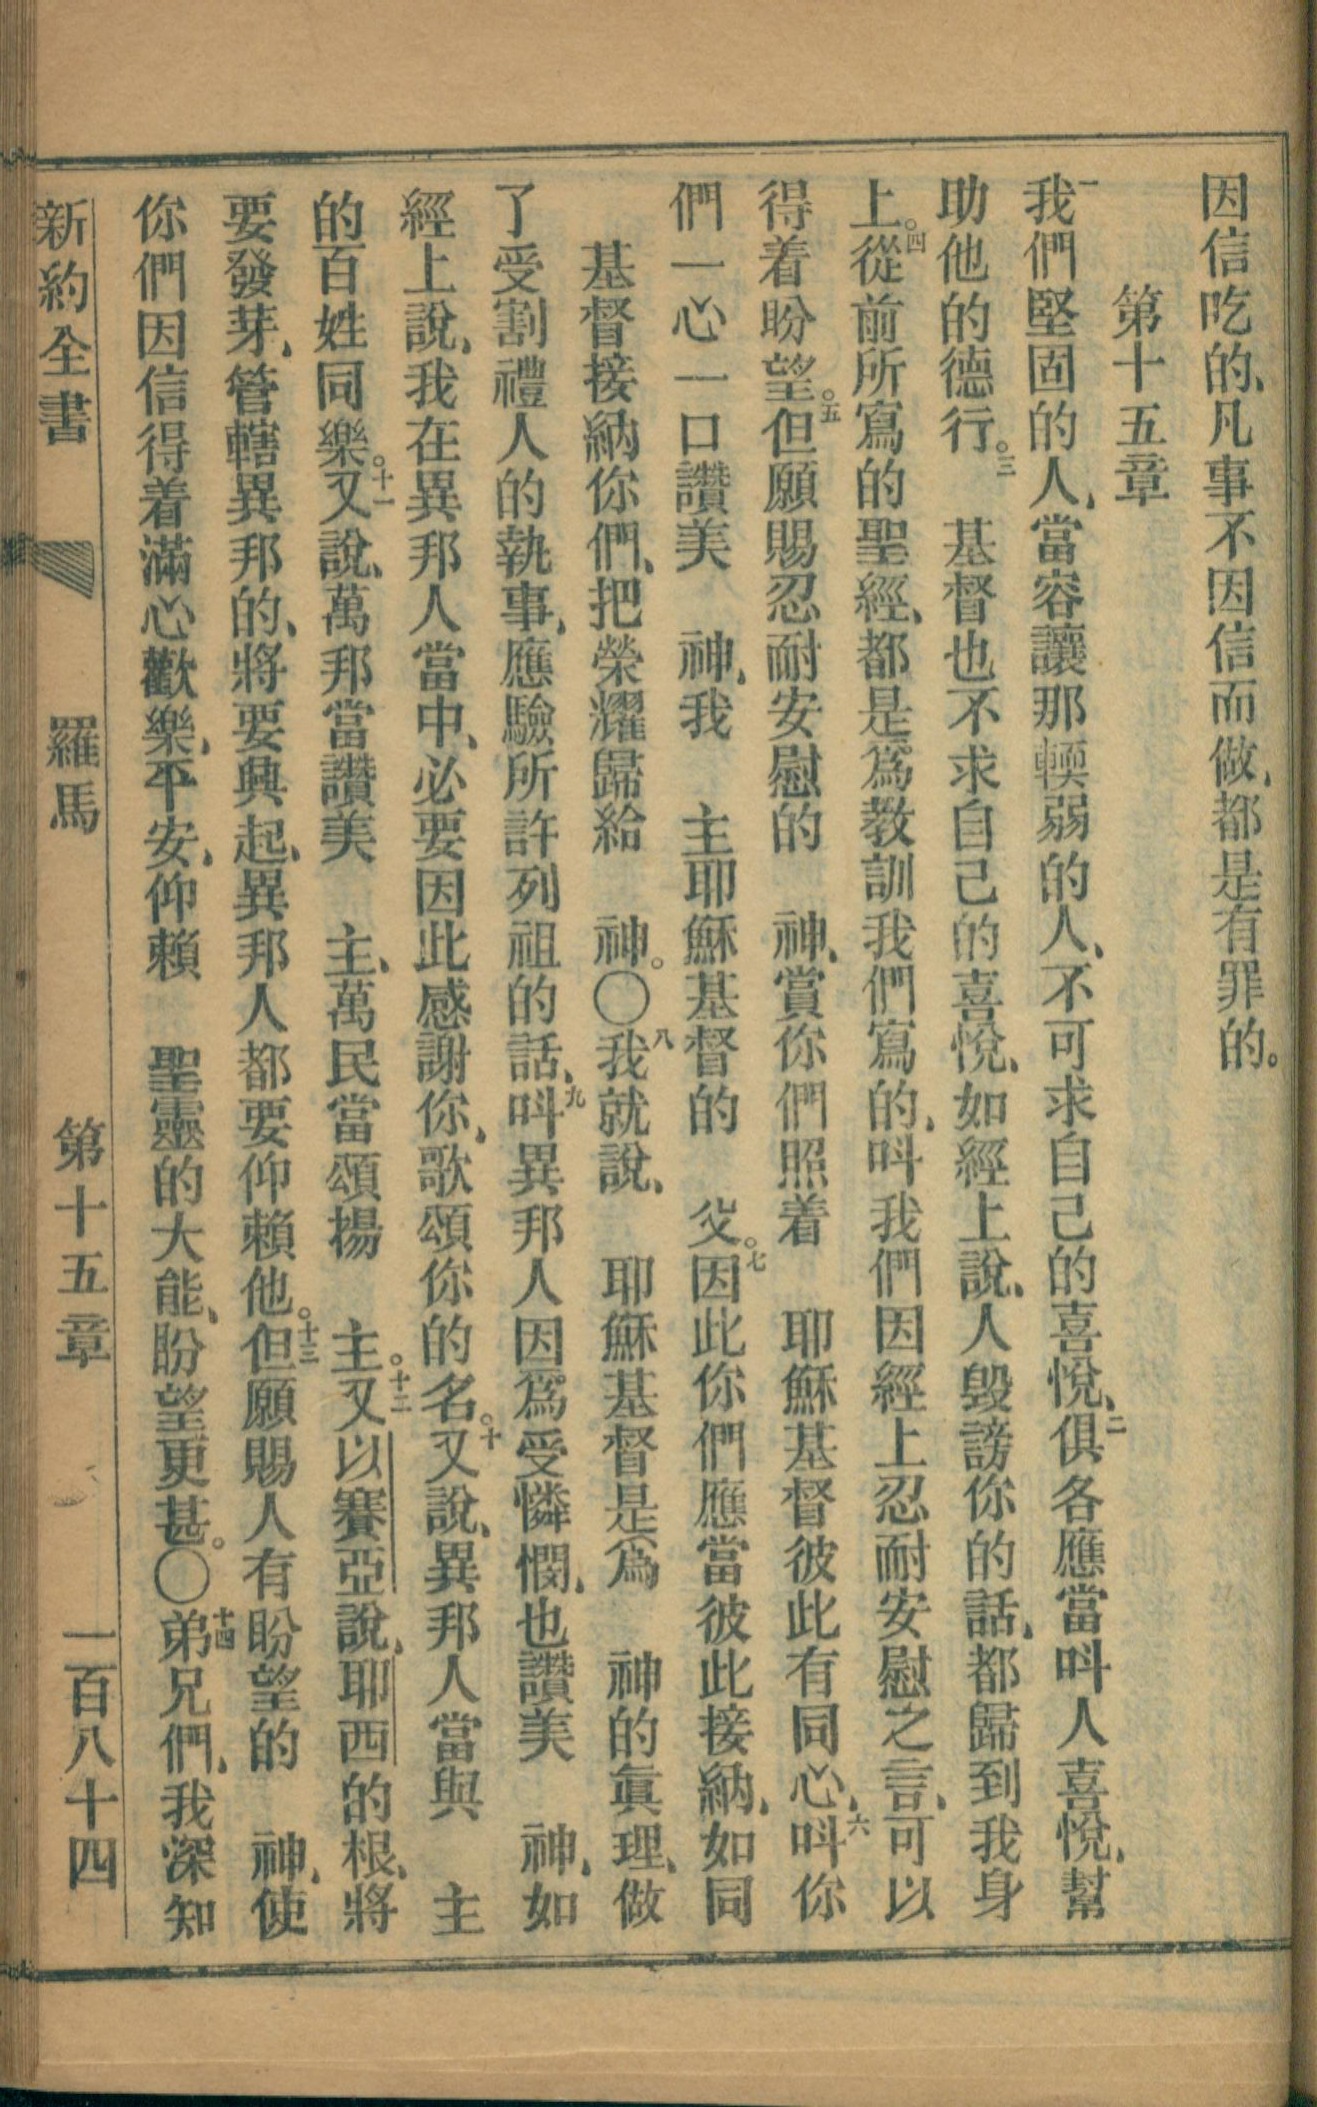 因信吃的、凡事不因信而做、都是有罪的。
第十五章
一我們堅固的人、當容讓那輭弱的人、不可求自己的喜悅、二俱各應當呌人喜悅、幫
助他的德行。三　基督也不求自己的喜悅、如經上說、人毀謗你的話、都歸到我身
上。四從前所寫的聖經、都是爲教訓我們寫的、呌我們因經上忍耐安慰之言、可以
得着盼望。五但願賜忍耐安慰的　神、賞你們照着　耶穌基督彼此有同心、六呌你
們一心一口讚美　神、我　主耶穌基督的　父。七因此你們應當彼此接納、如同
基督接納你們、把榮耀歸給　神。〇八我就說、　耶穌基督是爲　神的眞理、做
了受割禮人的執事、應驗所許列祖的話、九呌異邦人因爲受憐憫、也讚美　神、如
經上說、我在異邦人當中、必要因此感謝你、歌頌你的名。十又說、異邦人當與　主
的百姓同樂。十一又說、萬邦當讚美　主、萬民當頌揚　主。十二又以賽亞說、耶西的根、將
要發芽、管轄異邦的、將要興起、異邦人都要仰賴他。十三但願賜人有盼望的　神、使
你們因信得着滿心歡樂、平安、仰賴　聖靈的大能、盼望更甚。〇十四弟兄們、我深知
新約全書　羅馬　第十五章　一百八十四